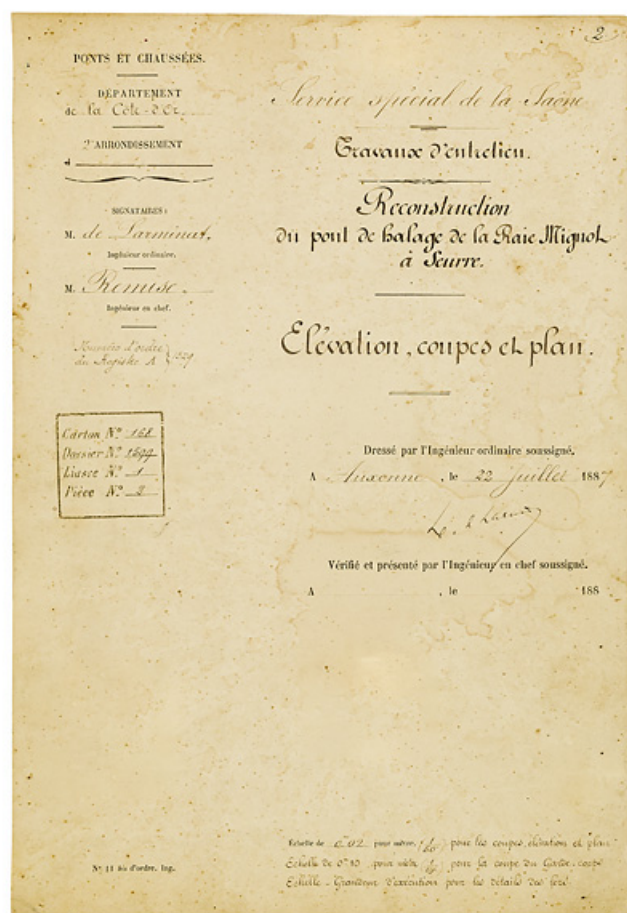 2
PONTS ET CHAUSSÉES.
DÉPARTEMENT
de la Côte-d'Or.
2e ARRONDISSEMENT
SIGNATAIRES :
M. de Larminat.
Ingénieur ordinaire.
M. Remise.
Ingénieur en chef.
Numéro d'ordre
du Registre A } 1529
Carton N° 168
Dossier N° 1599
Liasse N° 1
Pièce N° 2
Service spécial de la Saône
Travaux d'entretien.
Reconstruction
du pont de halage de la Raie Mignot
à Seurre.
Elévation, coupes et plan.
Dressé par l'Ingénieur ordinaire soussigné.
A Auxonne, le 22 Juillet 1887
Vérifié et présenté par l'Ingénieur en chef soussigné.
A , le 188
Echelle de 0m02 pour mètre, pour les coupes, élévation et plan
Echelle de 0m10 pour mètre pour la coupe du Garde-corps
Echelle - Grandeur d'exécution pour les détails des fers
N° 11 bis d'ordre. Ing.